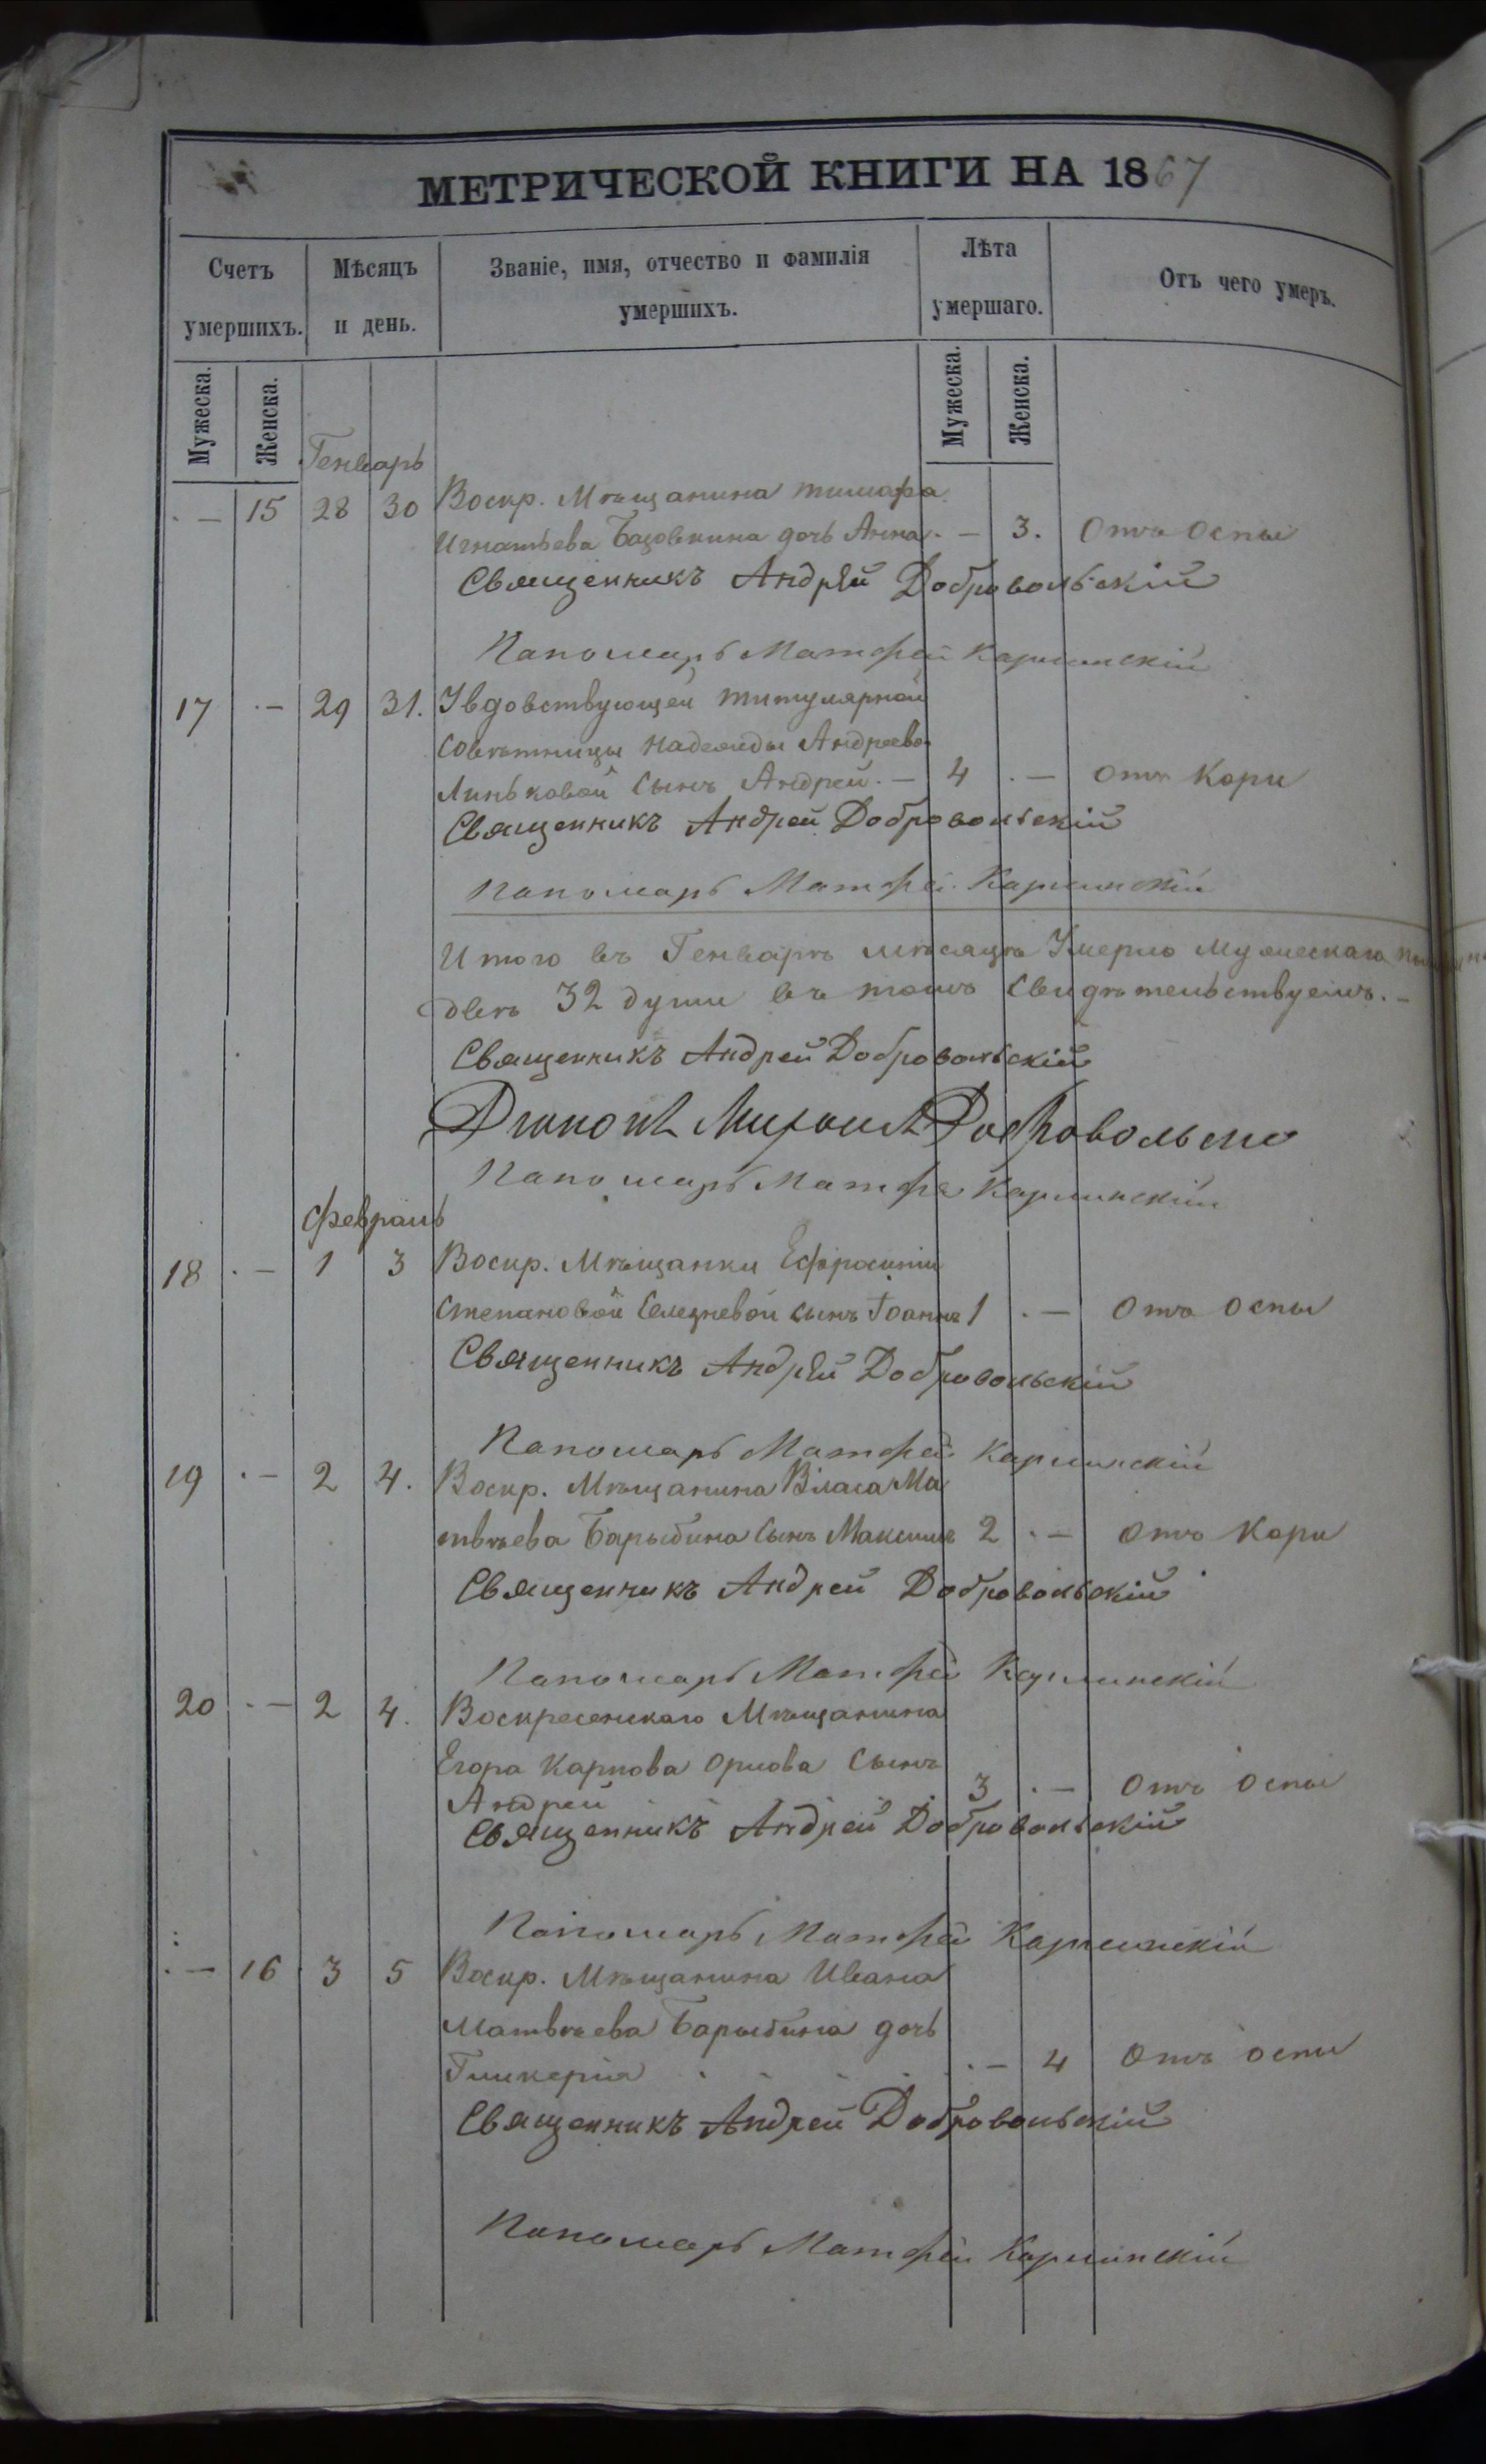 МЕТРИЧЕСКОЙ КНИГИ НА 1867
Счетъ умершихъ.
Мѣсяцъ и день.
Званіе, имя, отчество и фамилія умершихъ.
Лѣта умершаго.
Отъ чего умеръ.
Мужеска. Женска. Мужеска. Женска.
Генварь
. — 15 28 30 Воскр. Мѣщанина
Игнатьева дочь Анна. — 3. Отъ Оспы
Священникъ Андрей Добровольскій
Пономарь Матфей Карпинскій
17 . — 29 31. Увдовствующей титулярной
совѣтницы Надежды Андреево
Линьковой сынъ Андрей. — 4 . — Отъ Кори
Священникъ Андрей Добровольскій
Пономарь Матфей Карпинскій
Итого въ Генварѣ мѣсяцѣ Умерло Мужескаго
двѣ 32 души въ томъ свидѣтельствуемъ. —
Священникъ Андрей Добровольскій
Діаконъ Михаилъ
Пономарь Матфей Карпинскій
Февраль
18 . — 1 3 Воскр. Мѣщанки Ефросиніи
Степановой Селезневой сынъ Іоаннъ 1 . — Отъ Оспы
Священникъ Андрей Добровольскій
Пономарь Матфей Карпинскій
19 . — 2 4. Воскр. Мѣщанина Власа Ма
твѣева Барыбина сынъ Максимъ 2 . — Отъ Кори
Священникъ Андрей Добровольскій
Пономарь Матфей Карпинскій
20 . — 2 4. Воскресенскаго Мѣщанина
Егора Карпова Орлова Сынъ
Андрей 3 . — Отъ Оспы
Священникъ Андрей Добровольскій
Пономарь Матфей Карпинскій
. — 16 3 5 Воскр. Мѣщанина Ивана
Матвѣева Барыбина дочь
Гликерія . — 4 Отъ Оспы
Священникъ Андрей Добровольскій
Пономарь Матфей Карпинскій